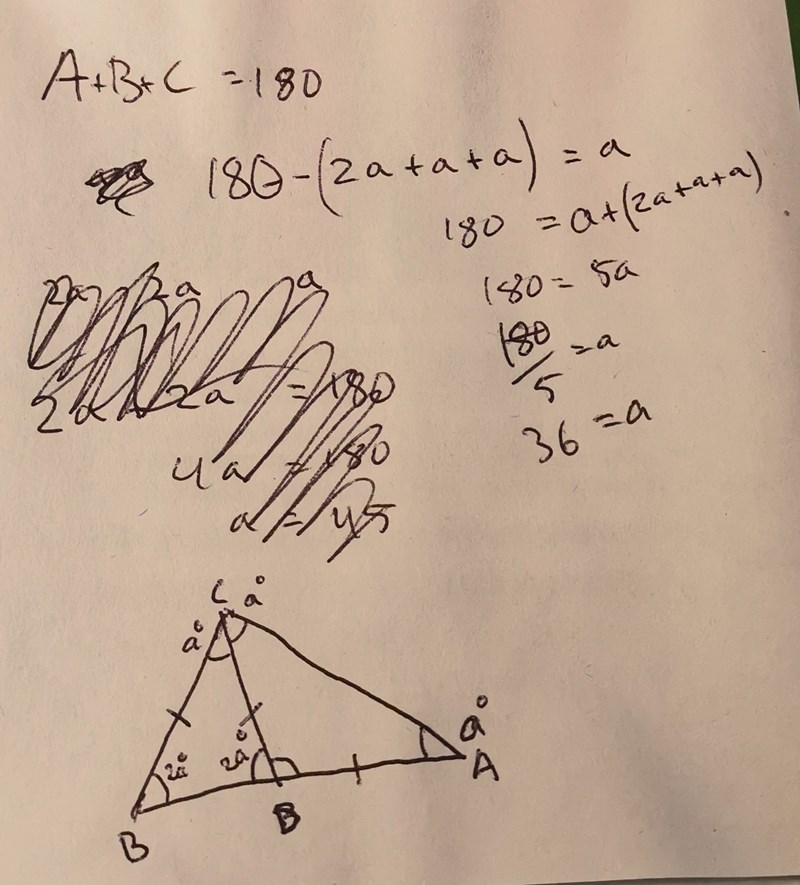 A+B+C = 180
180-(2a+a+a) = a
180 = a+(2a+a+a)
180 = 5a
180/5 = a
36 = a
2a 2a a
2a 2a = 180
4a = 180
a = 45
C a°
a°
a°
2a° 2a°
A
B
B